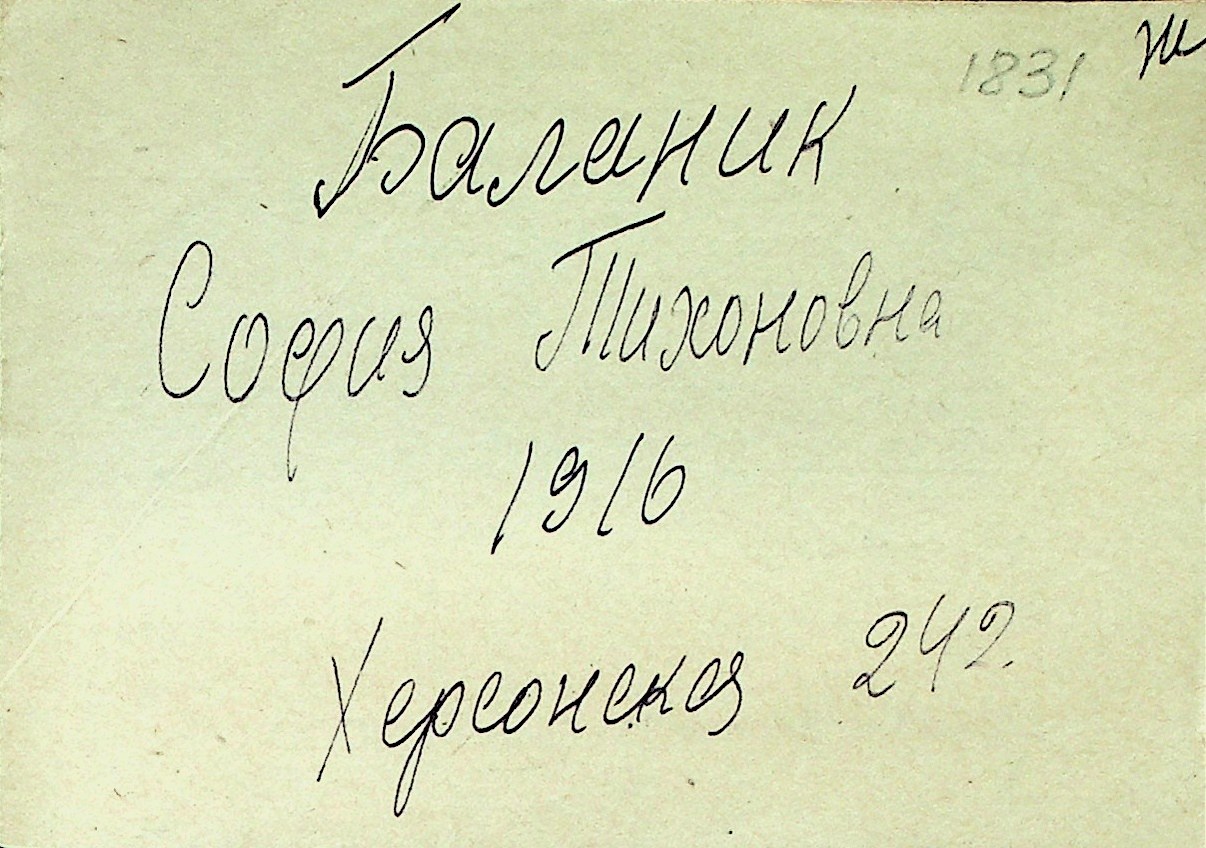 1831 ж
Баланик
София Тихоновна
1916
Херсонская 242.